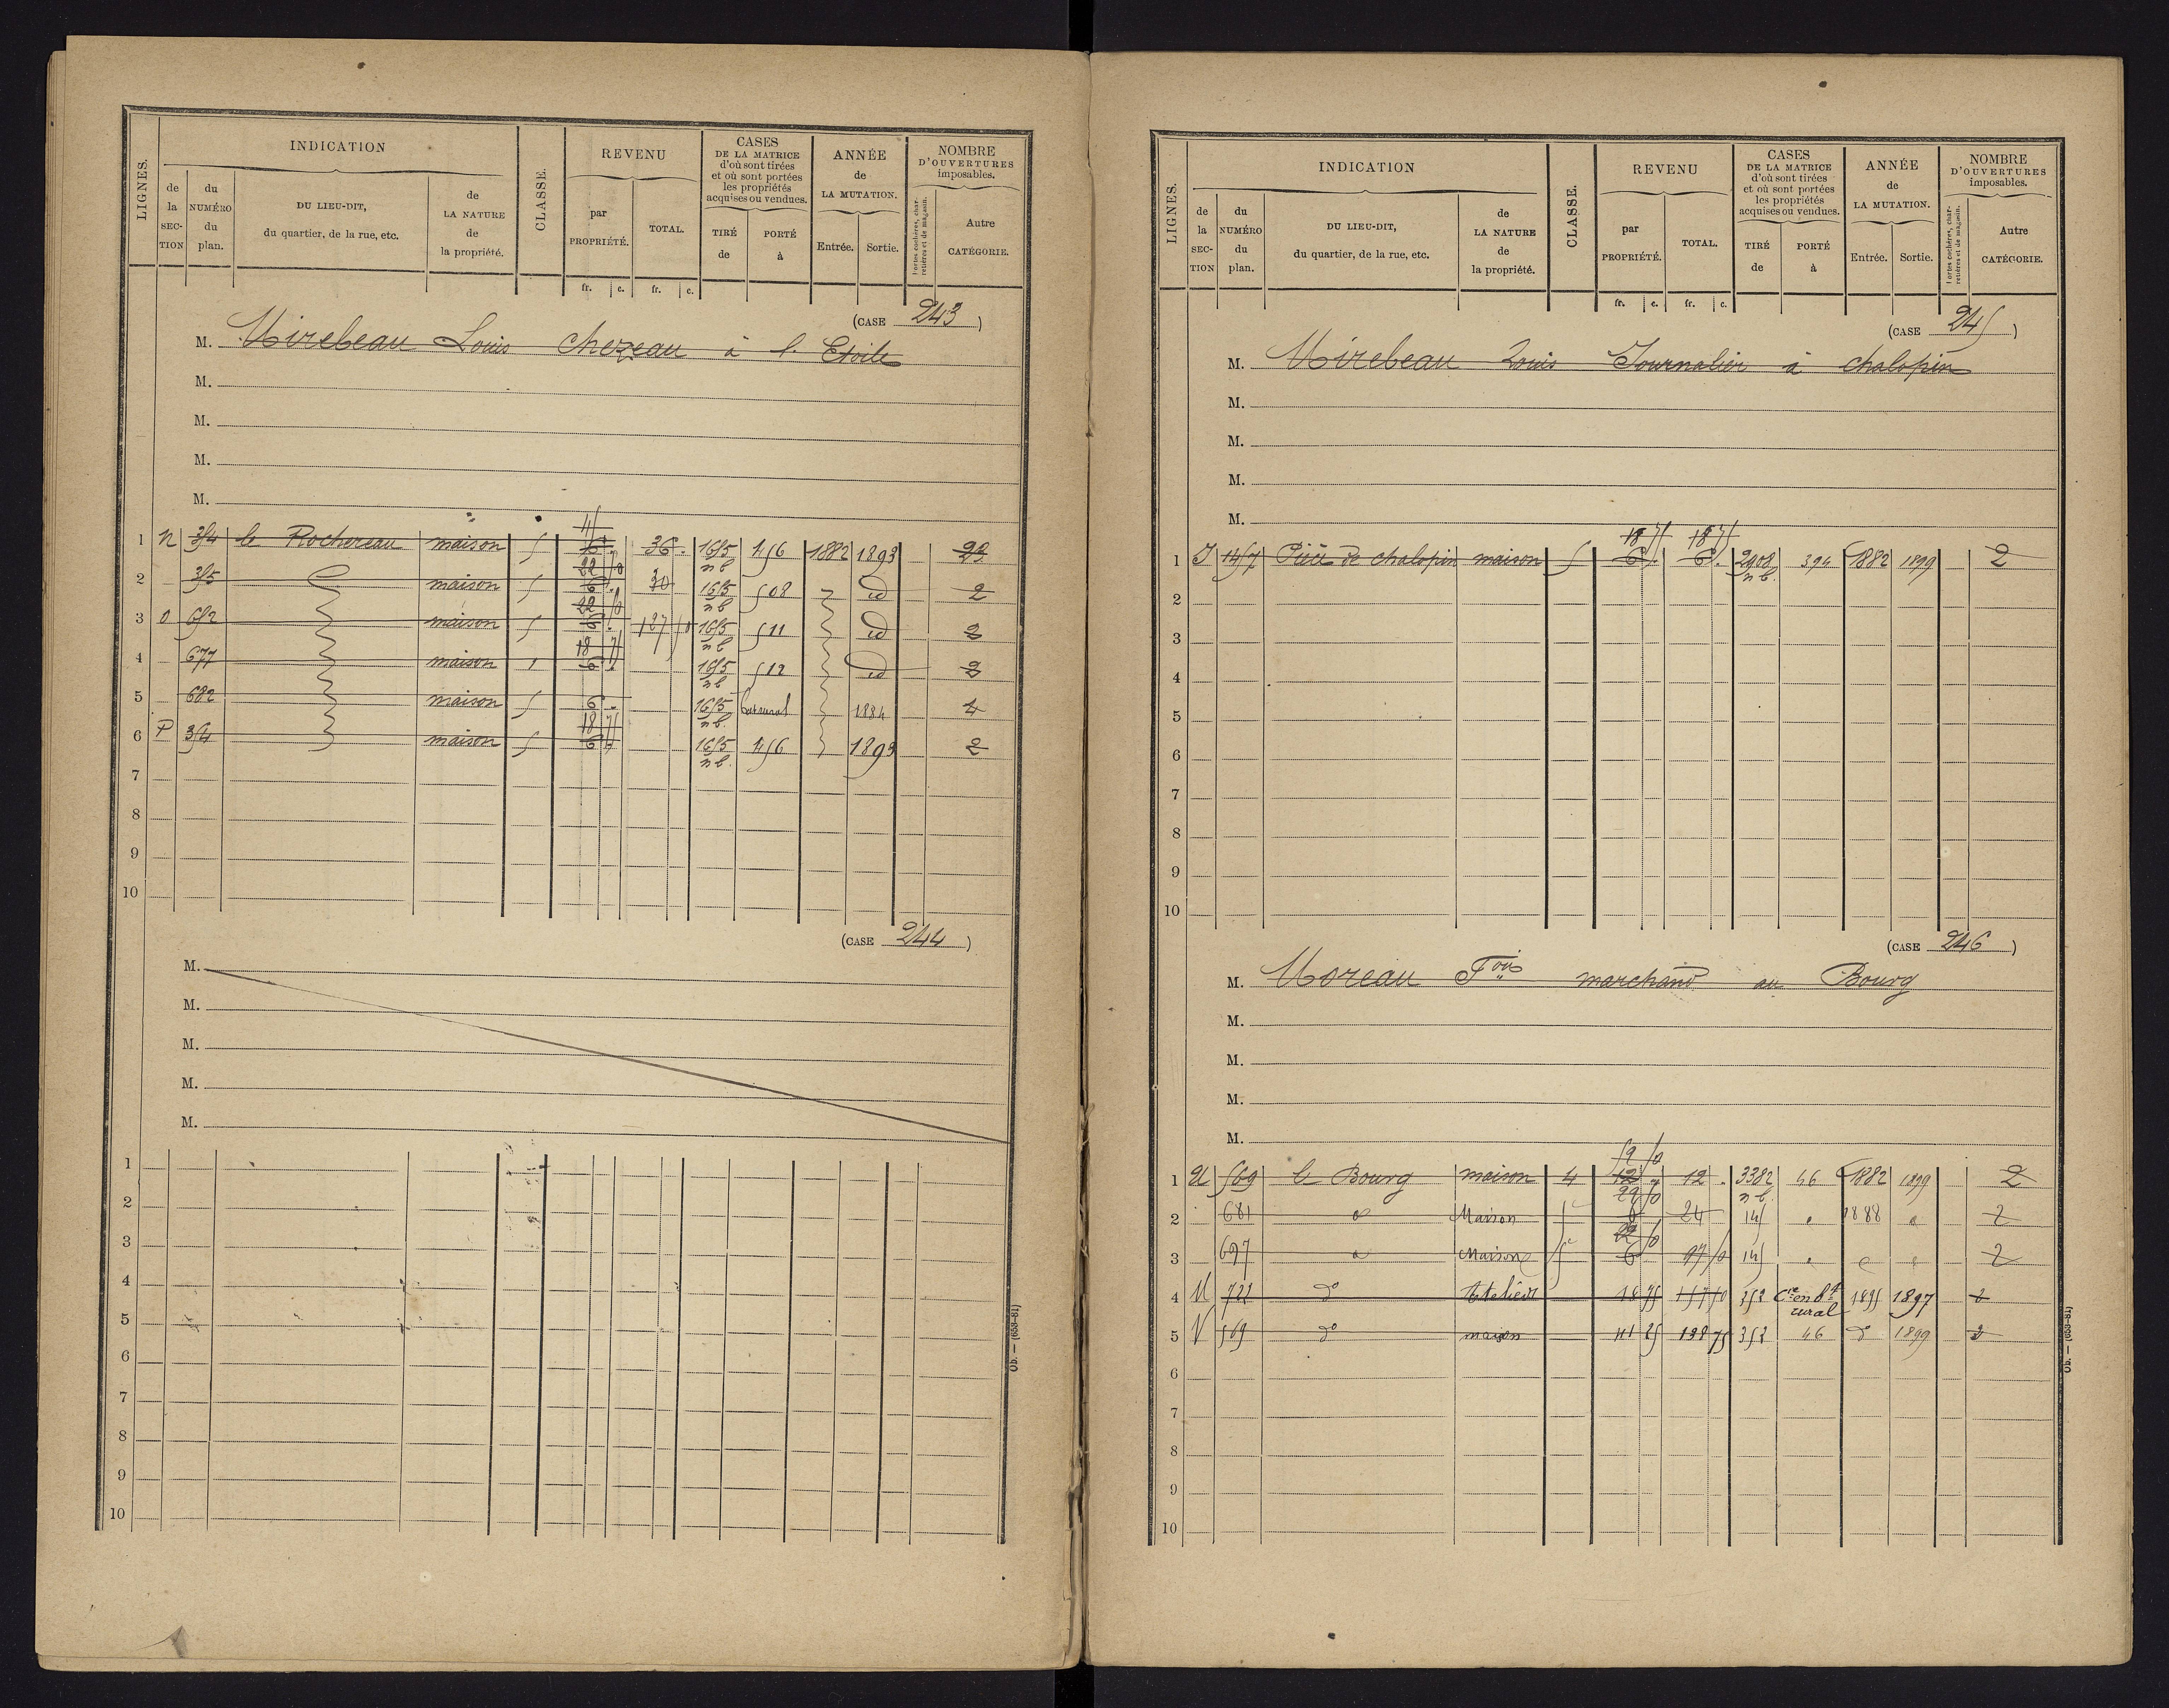 LIGNES.
INDICATION
de la SECTION
du NUMÉRO du plan.
DU LIEU-DIT, du quartier, de la rue, etc.
de LA NATURE de la propriété.
CLASSE.
REVENU
par PROPRIÉTÉ.
TOTAL.
fr. c. fr. c.
CASES DE LA MATRICE d'où sont tirées et où sont portées les propriétés acquises ou vendues.
TIRÉ de
PORTÉ à
ANNÉE de LA MUTATION.
Entrée. Sortie.
NOMBRE D'OUVERTURES imposables.
Portes cochères, charretières et de magasin.
Autre CATÉGORIE.
(CASE 243)
M. Mirebeau Louis Chezeau à l. Etoile
M.
M.
M.
M.
1 N 354 le Rochereau maison 5 6 36 1655 nb 456 1882 1893
2 355 maison 5 22 50 6 30 1655 nb 508 id 2
3 O 652 maison 5 22 50 6 127 50 1655 nb 511 id 2
4 677 maison 18 75 6 1655 nb 512 id 2
5 682 maison 5 6 1655 nb. rural 1884
6 P 354 maison 5 18 75 6 1655 nb. 456 1893 2
7
8
9
10
(CASE 244)
M.
M.
M.
M.
M.
1
2
3
4
5
6
7
8
9
10
Ob. — (653-81)
LIGNES.
INDICATION
de la SECTION
du NUMÉRO du plan.
DU LIEU-DIT, du quartier, de la rue, etc.
de LA NATURE de la propriété.
CLASSE.
REVENU
par PROPRIÉTÉ.
TOTAL.
fr. c. fr. c.
CASES DE LA MATRICE d'où sont tirées et où sont portées les propriétés acquises ou vendues.
TIRÉ de
PORTÉ à
ANNÉE de LA MUTATION.
Entrée. Sortie.
NOMBRE D'OUVERTURES imposables.
Portes cochères, charretières et de magasin.
Autre CATÉGORIE.
(CASE 245)
M. Mirebeau Louis Journalier à chalopin
M.
M.
M.
M.
18 75 18 75
1 J 1457 Pièce de chalopin maison 5 6 6 2908 nb. 394 1882 1899 2
2
3
4
5
6
7
8
9
10
(CASE 246)
M. Moreau Fois marchand au Bourg
M.
M.
M.
M.
1 U 569 le Bourg maison 4 12 12 3382 nb. 46 1882 1899 2
2 681 Maison 24 145 1888 2
3 697 Maison 6 97 50 145 2
4 U 722 do Atelier 18 75 352 rural 1895 1897 2
5 V 569 do maison 41 25 138 75 352 46 do 1899 2
6
7
8
9
10
Ob. — (653-81)